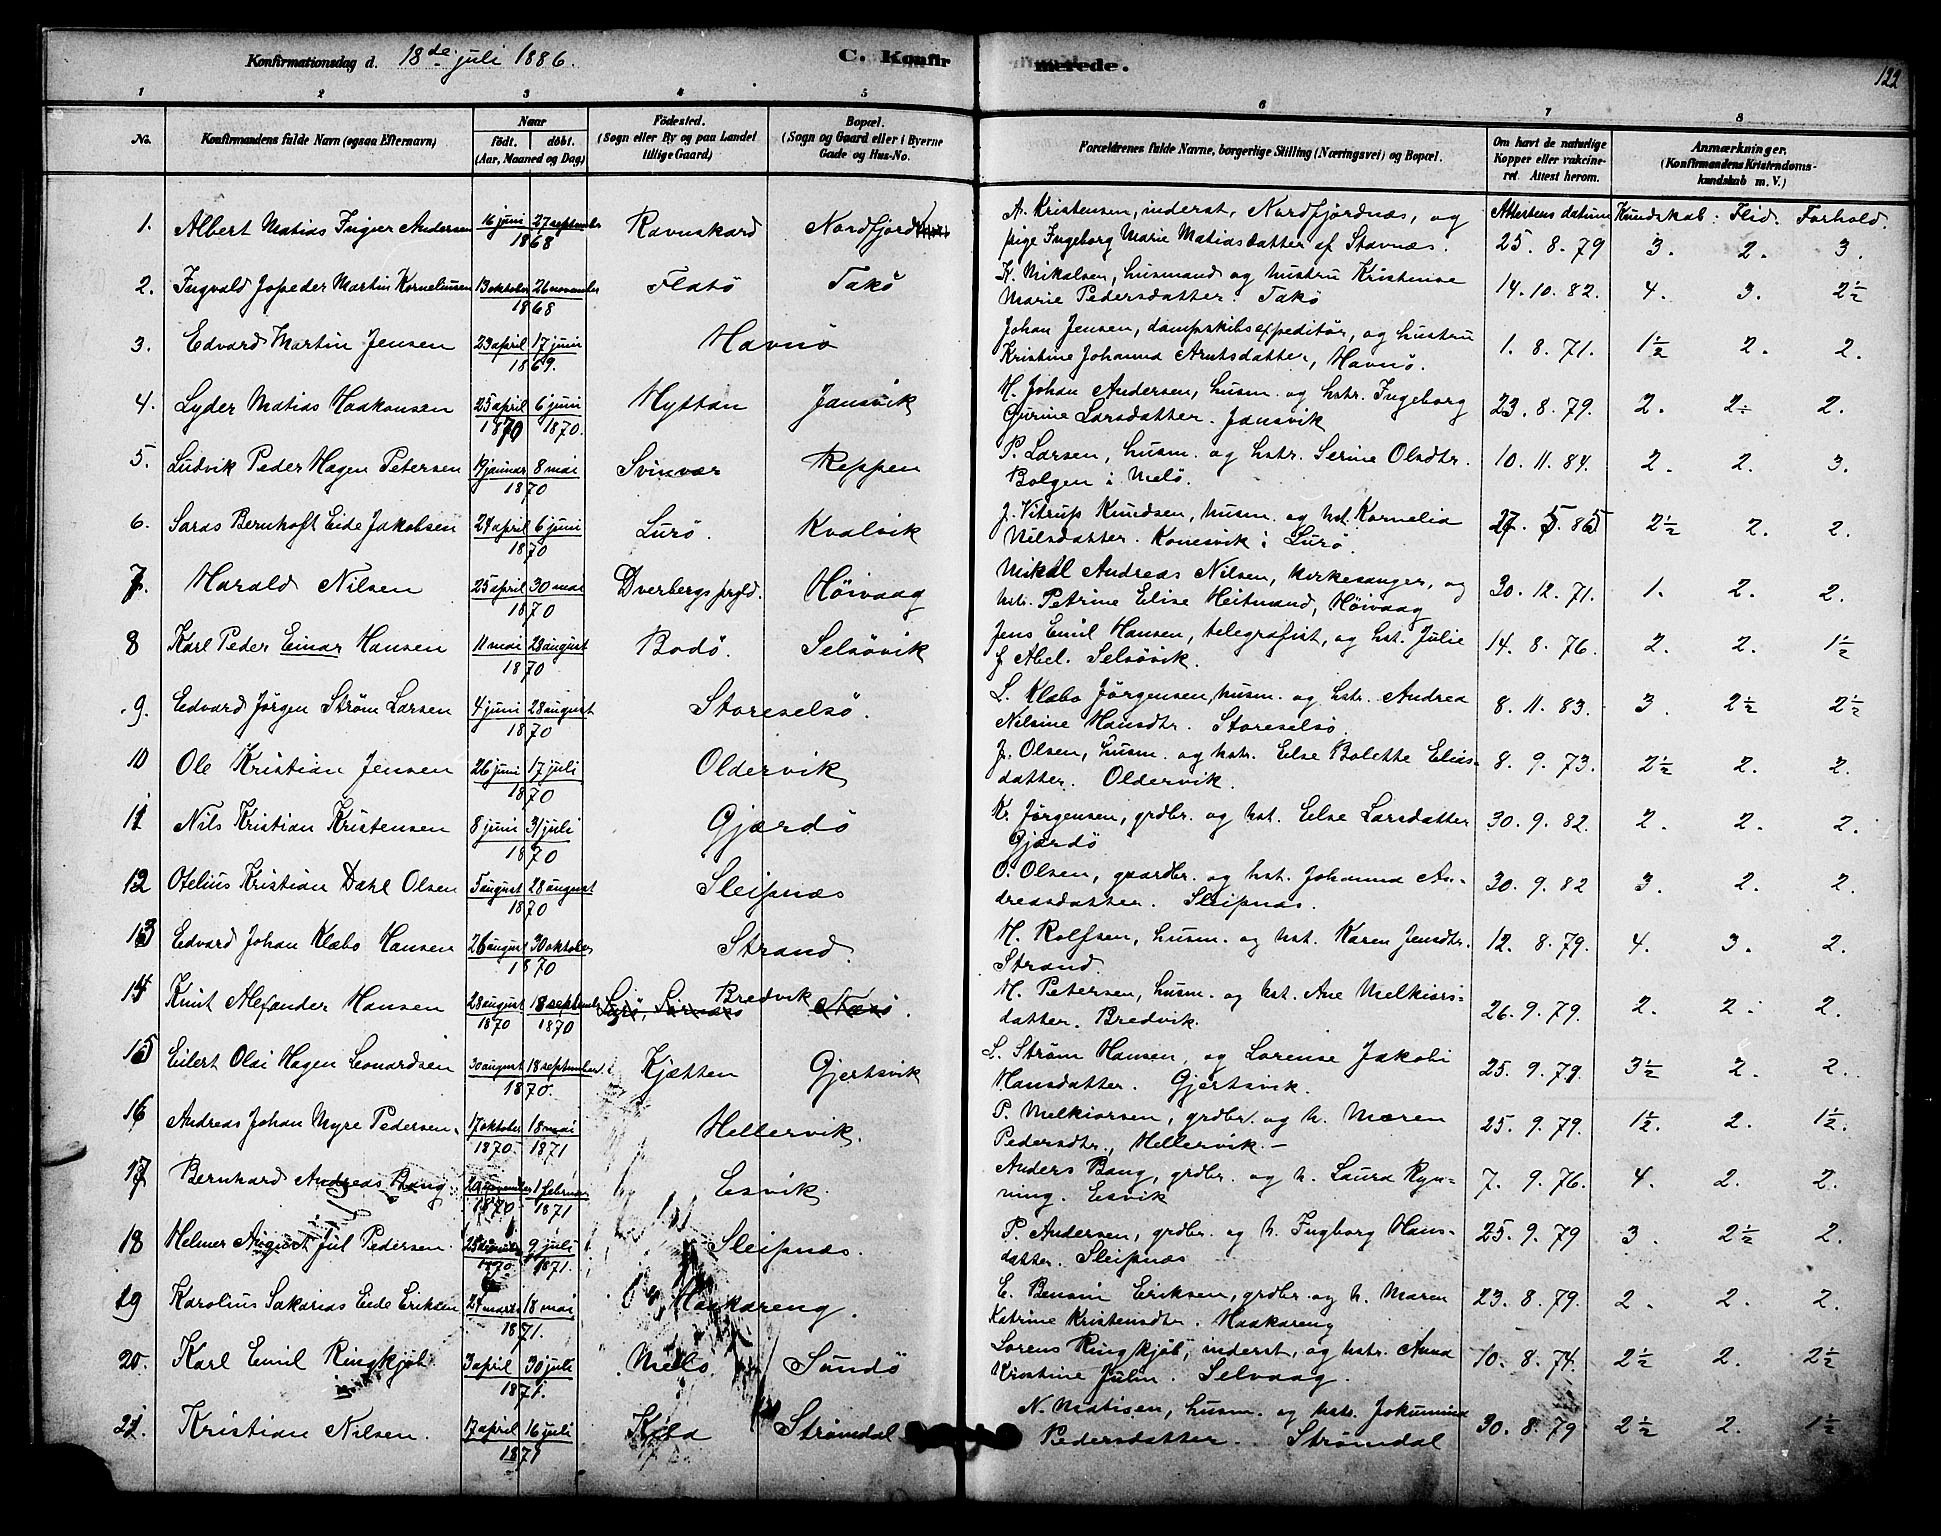 Konfirmationsdag d. 18de juli 1886.
C. Konfirmerede.
122
1 2 3 4 5 6 7 8
No.
Konfirmandens fulde Navn (ogsaa Efternavn)
Naar
født. døbt.
(Aar, Maaned og Dag)
Fødested.
(Sogn eller By og paa Landet
tillige Gaard)
Bopæl.
(Sogn og Gaard eller i Byerne
Gade og Hus-No.
Forældrenes fulde Navne, borgerlige Stilling (Næringsvei) og Bopæl.
Om havt de naturlige
Kopper eller vakcineret. Attest herom.
Anmærkninger.
(Konfirmandens Kristendomskundskab m. V.)
Attestens datum Kundskab: Flid. Forhold.
1. Albert Matias Ingier Andersen 16 juni 27 september 1868 Ravnskard Nordfjord
A. Kristensen, inderst, Nordfjordnæs, og
pige Ingeborg Marie Matiasdatter af Stavnæs. 25. 8. 79 3. 2. 3.
2. Ingvald Jopeder Martin Korneliusen 13 oktober 26 november 1868 Flatø Takø
K. Mikalsen, husmand og hustru Kristense
Marie Pedersdatter. Takø 14. 10. 82. 4. 3. 2½
3. Edvard Martin Jensen 23 april 17 juni 1869. Havnø
Johan Jensen, dampskibsexpeditør, og hustru
Kristine Johanna Arntsdatter, Havnø. 1. 8. 71. 1½ 2. 2.
4. Lyder Matias Haakonsen 25 april 1870 6 juni 1870. Hyttan Jansvik
H. Johan Andersen, husm. og hstr. Ingeborg
Gurine Larsdatter. Jansvik 23. 8. 79. 2. 2÷ 2.
5. Ludvik Peder Hagen Petersen 19 januar 8 mai 1870 Svinvær Reppen
P. Larsen, husm. og hstr. Serine Olsdtr.
Bolgen i Melø. 10. 11. 84. 2. 2. 3.
6. Saras Bernhoft Eide Jakobsen 24 april 6 juni 1870 Lurø. Kvalvik
J. Vitrup Knudsen, husm. og hst. Kornelia
Nilsdatter. Konesvik i Lurø. 27. 5. 86 2½ 2. 2.
7. Harald Nilsen 25 april 30 mai 1870 Dverbergs prgld. Høivaag
Mikal Andreas Nilsen, kirkesanger, og
hstr. Petrine Elise Heitmand, Høivaag 30. 12. 71. 1. 2. 2.
8 Karl Peder Einar Hansen 11 mai 23 august 1870 Bodø. Selsøvik
Jens Emil Hansen, telegrafist, og hst. Julie
f Abel. Selsøvik. 14. 8. 76. 2. 2. 1½
9. Edvard Jørgen Strøm Larsen 4 juni 28 august 1870 Storeselsø.
L. Klæbo Jørgensen, husm. og hstr. Andrea
Nilsine Hansdtr. Storeselsø. 8. 11. 83. 3. 2½ 2½
10 Ole Kristian Jensen 26 juni 17 juli 1870 Oldervik
J. Olsen, husm. og hstr. Else Bolette Elias-
datter. Oldervik. 8. 9. 73. 2½ 2. 2.
11 Nils Kristian Kristensen 8 juni 31 juli 1870 Gjærdø
Kr. Jørgensen, grdbr. og hst. Else Larsdatter
Gjærdø 30. 9. 82. 2. 2. 2.
12 Otelius Kristian Dahl Olsen 5 august 28 august 1870 Sleipnæs
O. Olsen, gaardbr. og hst. Johanna An-
dreasdatter. Sleipnæs. 30. 9. 82 3. 2. 2.
13 Edvard Johan Klæbo Hansen 26 august 30 oktober 1870 Strand.
H. Rolfsen, husm. og hst. Karen Jensdtr.
Strand. 12. 8. 79. 4. 3. 2.
14 Knut Alexander Hansen 28 august 1870 18 septemb 1870 Bredvik
H. Petersen, husm. og hst. Ane Melkiors-
datter. Bredvik. 26. 9. 79. 2. 2. 2.
15 Eilert Olai Hagen Leonardsen 30 august 18 september 1870. Kjætten Gjertsvik
L. Strøm Hansen, og Lorense Jakobi
Hansdatter. Gjertsvik. 25. 9. 79. 3½ 2. 2.
16 Andreas Johan Myre Pedersen. 17 oktober 1870. 18 mai 1871 Hellervik.
P. Melkiorsen, grdbr. og h. Maren
Pedersdtr., Hellervik. – 25. 9. 79. 1½ 2. 1½
17 Bernhard Andreas Bang 29 november 1870 1 februar 1871 Esvik.
Anders Bang, grdbr. og h. Laura Ryn-
ning. Esvik 7. 9. 76. 4. 2. 2.
18 Helmer August Jul Pedersen. 25 1870 9 juli 1871. Sleipnæs.
P. Andersen, grdbr. og h. Ingborg Hans-
datter. Sleipnæs 25. 9. 79 3. 2½ 2.
19 Karolius Sakarias Eide Eriksen 27 marts 18 mai 1871. Haakareng.
E. Bensin Eriksen, grdbr. og h. Maren
Katrine Kristensdtr. Haakareng 23. 8. 79. 2. 2. 2.
20. Karl Emil Ringkjøb 3 april 30 juli 1871. Melø Sundø
Lorens Ringkjøb, inderst, og hstr. Anna
Kristine Julin. Selvaag. 10. 8. 74. 2½ 2. 2½
21. Kristian Nilsen. 17 april 16 juli 1871 Kila Strømdal
N. Matisen, husm. og hstr. Jokumine
Pedersdatter. Strømdal 30. 8. 79 2½ 2. 1½